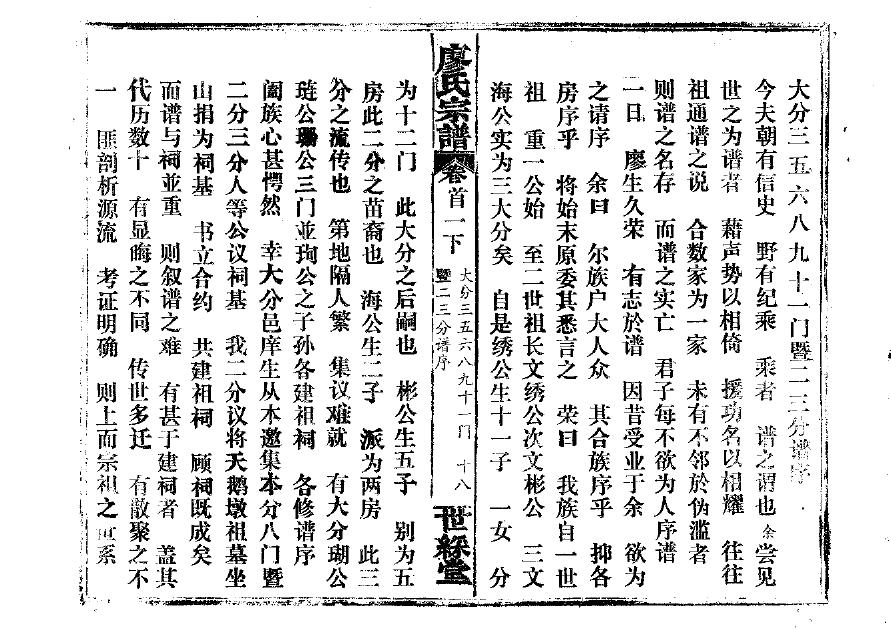 大分三五六八九十一门暨二三分谱序
今夫朝有信史　野有纪乘　乘者　谱之谓也　余尝见
世之为谱者　藉声势以相倚　援功名以相耀　往往
祖通谱之说　合数家为一家　未有不邻於伪滥者
则谱之名存　而谱之实亡　君子每不欲为人序谱
一日　廖生久荣　有志於谱　因昔受业于余　欲为
之请序　余曰　尔族户大人众　其合族序乎　抑各
房序乎　将始末原委其悉言之　荣曰　我族自一世
祖　重一公始　至二世祖长文绣公次文彬公　三文
海公实为三大分矣　自是绣公生十一子　一女　分
廖氏宗譜
卷首一下
大分三五六八九十一门
暨二三分谱序
十八
世綵堂
为十二门　此大分之后嗣也　彬公生五子　别为五
房此二分之苗裔也　海公生二子　派为两房　此三
分之流传也　第地隔人繁　集议难就　有大分瑚公
琏公珊公三门並珣公之子孙各建祖祠　各修谱序
阖族心甚愕然　幸大分邑庠生从本邀集本分八门暨
二分三分人等公议祠基　我二分议将天鹅墩祖墓坐
山捐为祠基　书立合约　共建祖祠　顾祠既成矣
而谱与祠並重　则叙谱之难　有甚于建祠者　盖其
代历数十　有显晦之不同　传世多迁　有散聚之不
一　匪剖析源流　考证明确　则上而宗祖之世系